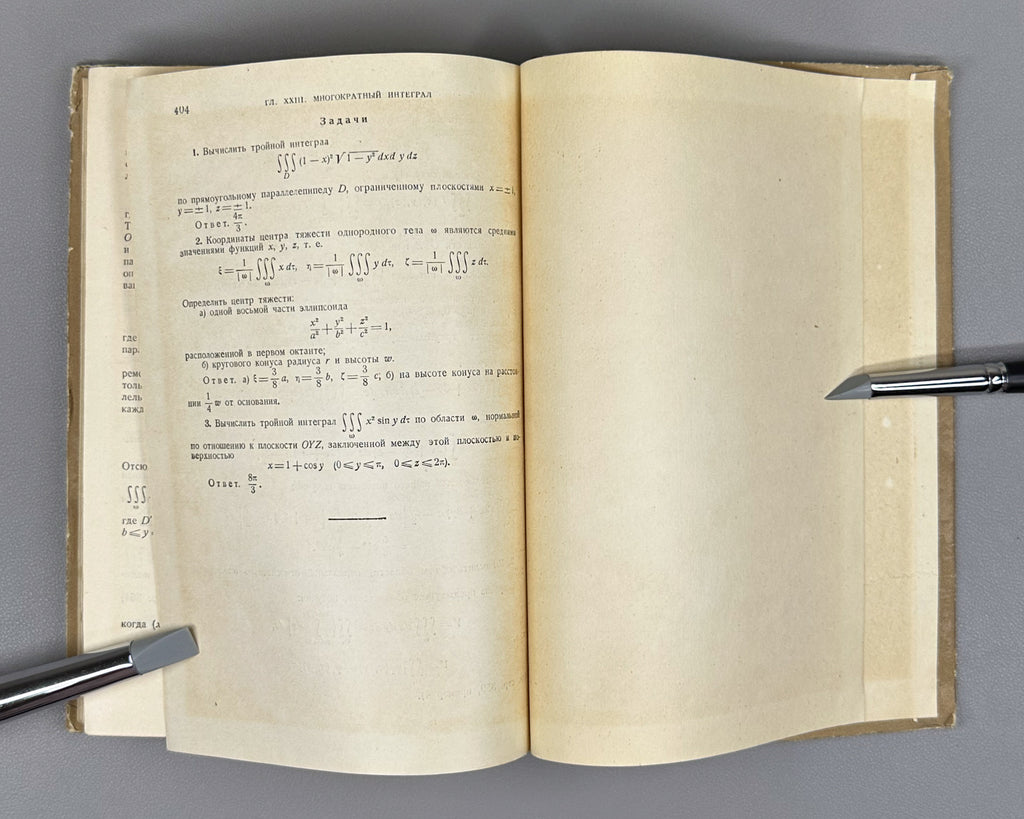 404
ГЛ. XXIII. МНОГОКРАТНЫЙ ИНТЕГРАЛ
Задачи
1. Вычислить тройной интеграл
∭_D (1 − x)² √(1 − y²) dxd y dz
по прямоугольному параллелепипеду D, ограниченному плоскостями x = ±1,
y = ±1, z = ±1.
Ответ. 4π/3.
2. Координаты центра тяжести однородного тела ω являются средними
значениями функций x, y, z, т. е.
ξ = 1/|ω| ∭_ω x dτ, η = 1/|ω| ∭_ω y dτ, ζ = 1/|ω| ∭_ω z dτ.
Определить центр тяжести:
а) одной восьмой части эллипсоида
x²/a² + y²/b² + z²/c² = 1,
расположенной в первом октанте;
б) кругового конуса радиуса r и высоты w.
Ответ. а) ξ = 3/8 a, η = 3/8 b, ζ = 3/8 c; б) на высоте конуса на расстоя-
нии 1/4 w от основания.
3. Вычислить тройной интеграл ∭_ω x² sin y dτ по области ω, нормальной
по отношению к плоскости OYZ, заключенной между этой плоскостью и по-
верхностью
x = 1 + cos y (0 ⩽ y ⩽ π, 0 ⩽ z ⩽ 2π).
Ответ. 8π/3.
г.
Т
О
и
па
оп
ваı
где
пар.
реме
толь
лель
кажд
Отсю
∭_ω
где D'
b ⩽ y
когда (